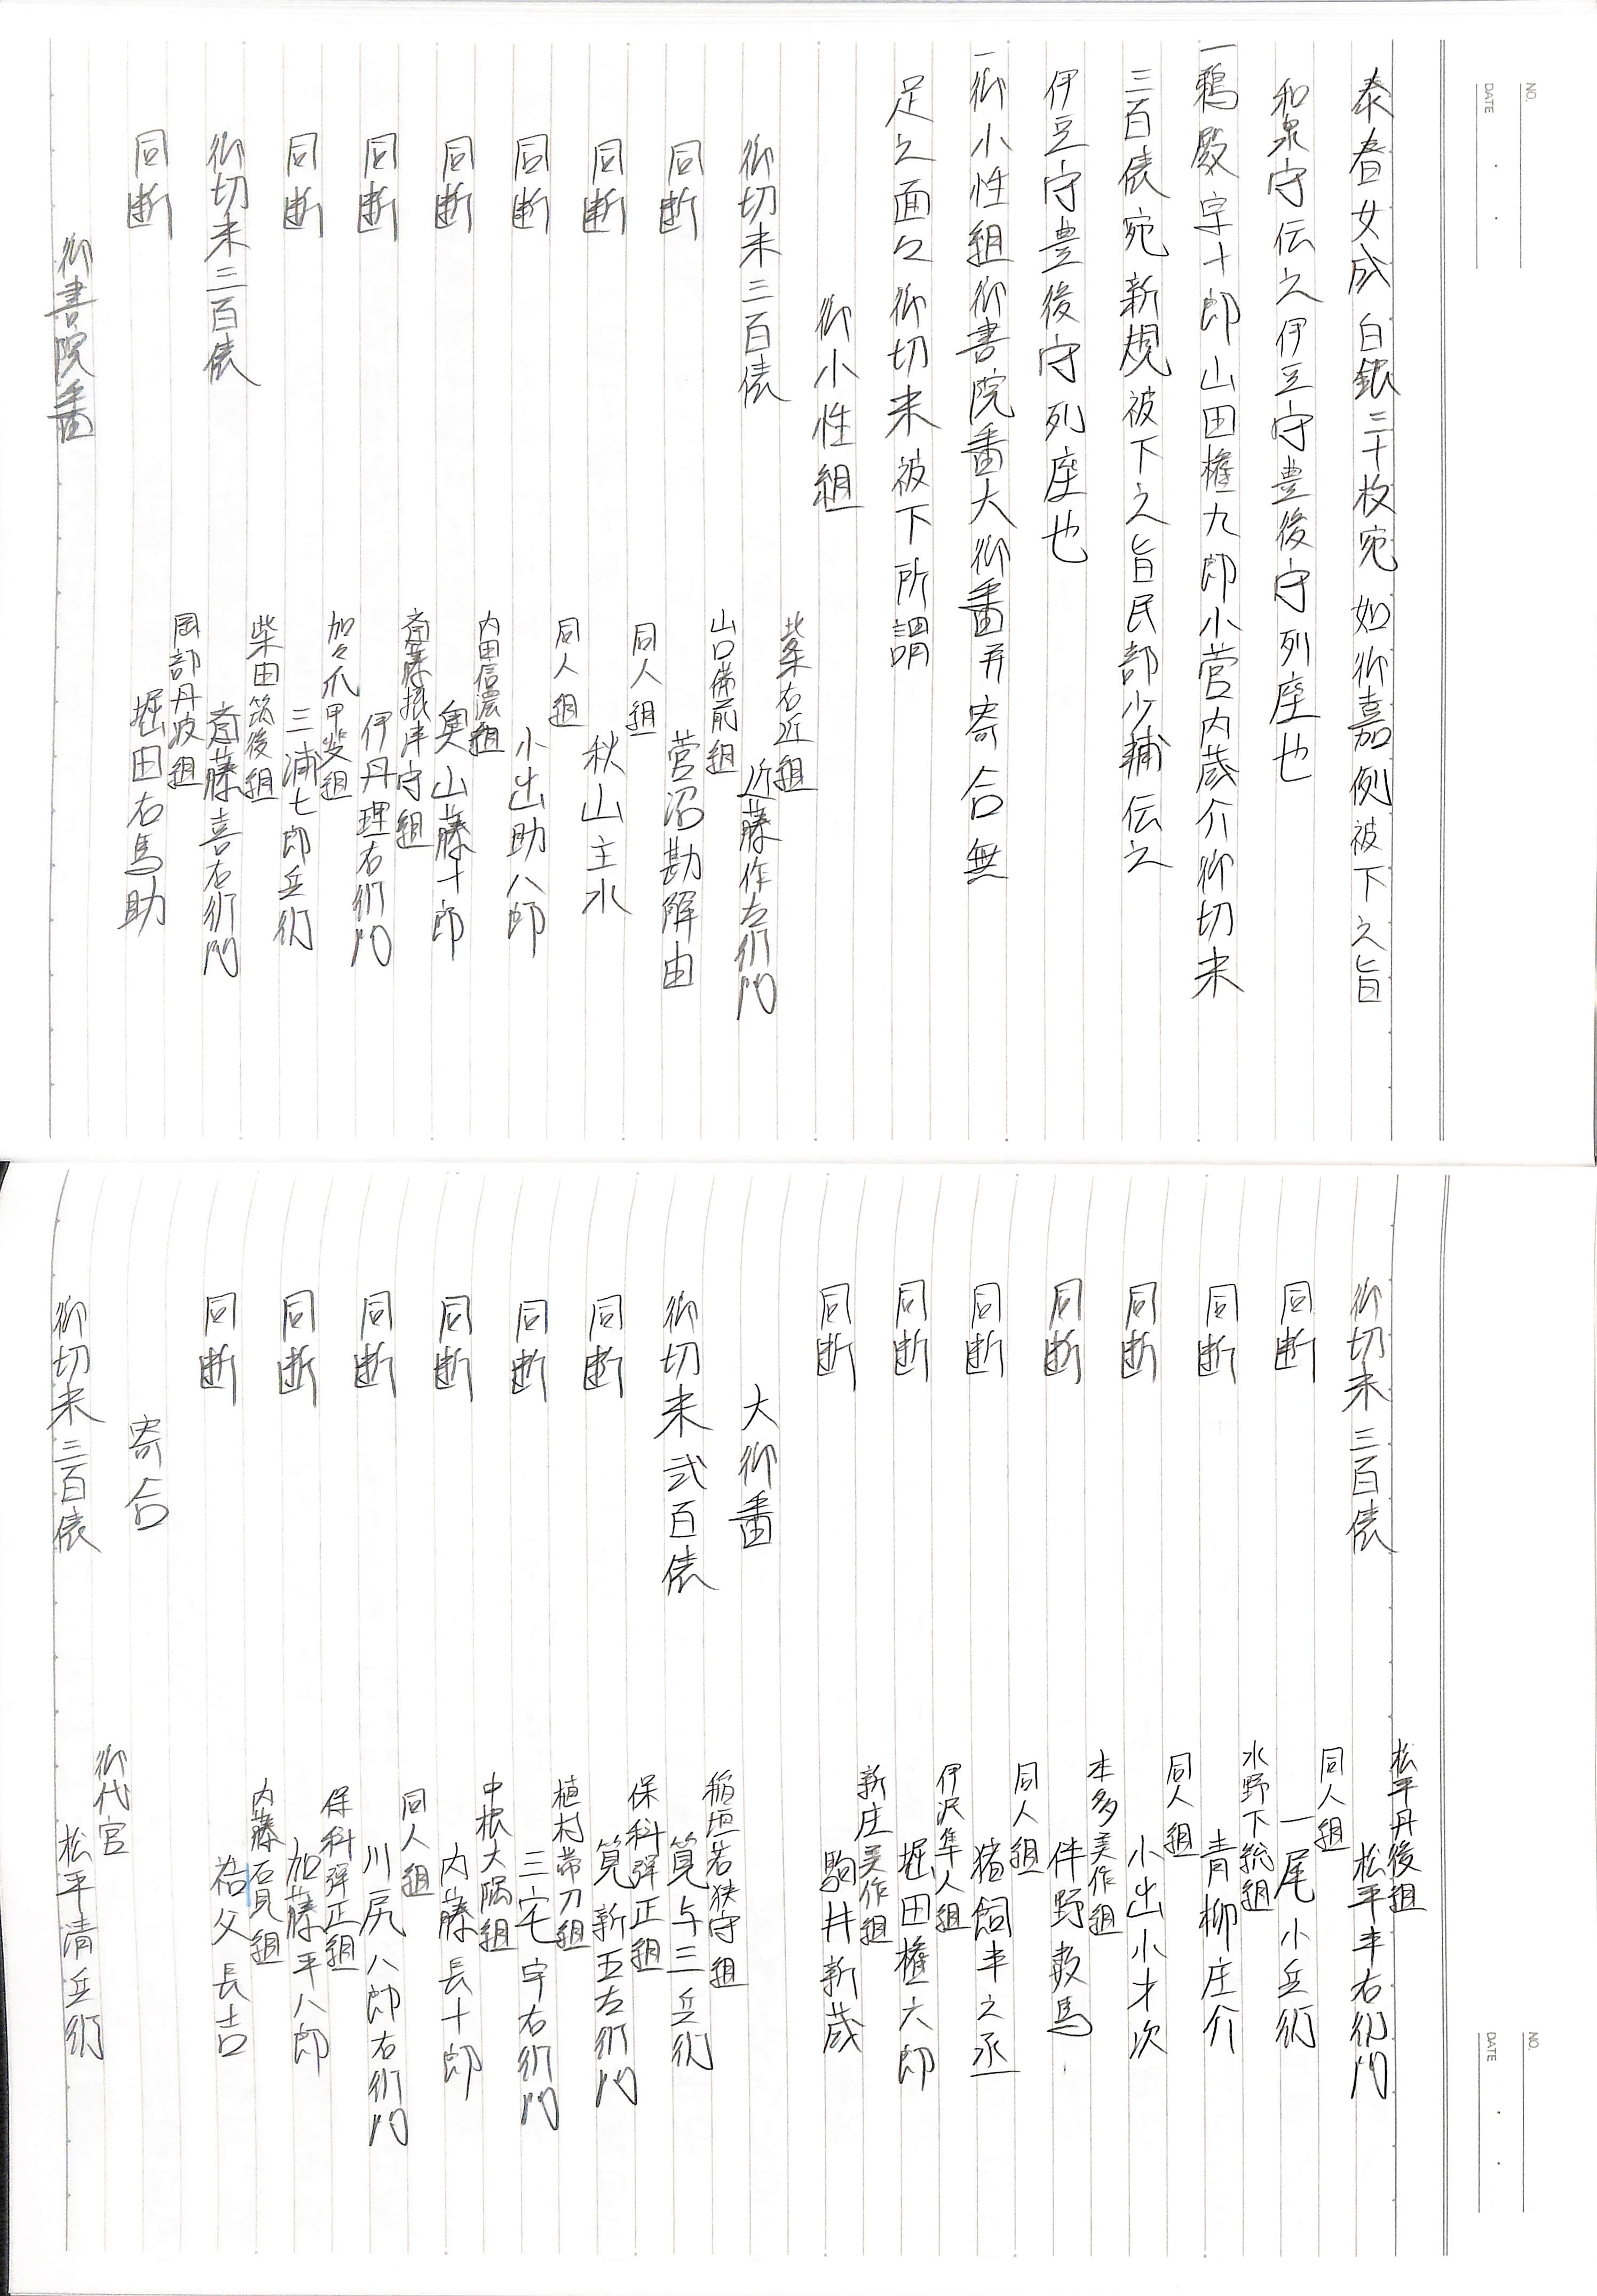 NO.
DATE
泰春女成 白銀三十枚宛 如御嘉例被下之旨
和泉守伝之伊豆守豊後守列座也
一鵜殿宇十郎山田権九郎小菅内蔵介御切米
三百俵宛新規被下之旨民部少輔伝之
伊豆守豊後守列座也
一御小性組御書院番大御番并寄合無
足之面々御切米被下所謂
御小性組
北条右近組
御切米三百俵 近藤作左衛門
山口備前組
同断 菅沼勘解由
同人組
同断 秋山主水
同人組
同断 小出助八郎
内田信濃組
同断 奥山藤十郎
斎藤摂津守組
同断 伊丹理右衛門
加々爪甲斐組
同断 三浦七郎兵衛
柴田筑後組
御切米三百俵 斎藤喜右衛門
岡部丹波組
同断 堀田右馬助
御書院番
NO.
DATE
松平丹後組
御切米三百俵 松平半右衛門
同人組
同断 一尾小兵衛
水野下総組
同断 青柳庄介
同人組
同断 小出小才次
本多美作組
同断 伴野数馬
同人組
同断 猪飼半之丞
伊沢隼人組
同断 堀田権六郎
新庄美作組
同断 駒井新蔵
大御番
稲垣若狭守組
御切米弐百俵 筧与三兵衛
保科弾正組
同断 筧新五左衛門
植村帯刀組
同断 三宅宇右衛門
中根大隅組
同断 内藤長十郎
同人組
同断 川尻八郎右衛門
保科弾正組
同断 加藤平八郎
内藤石見組
同断 祢父長吉
寄合
御代官
御切米三百俵 松平清兵衛